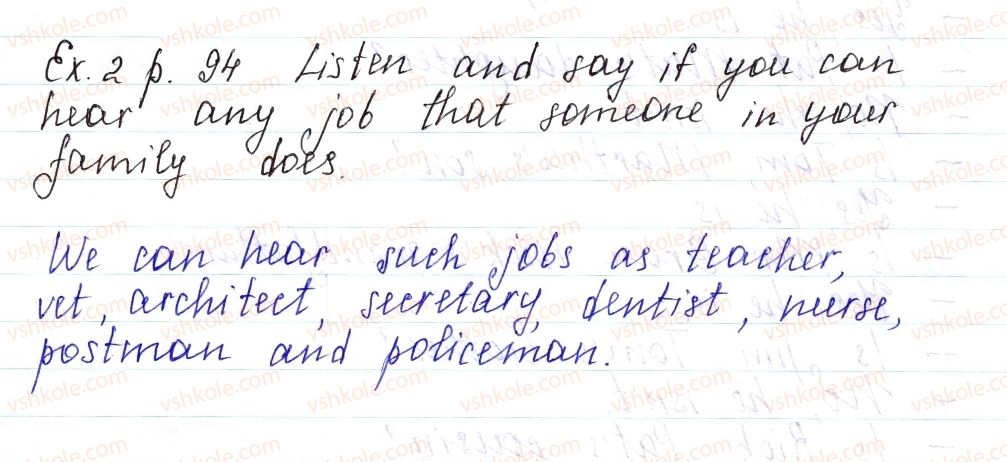 Ex. 2 p. 94 Listen and say if you can
hear any job that someone in your
family does.
We can hear such jobs as teacher,
vet, architect, secretary, dentist, nurse,
postman and policeman.